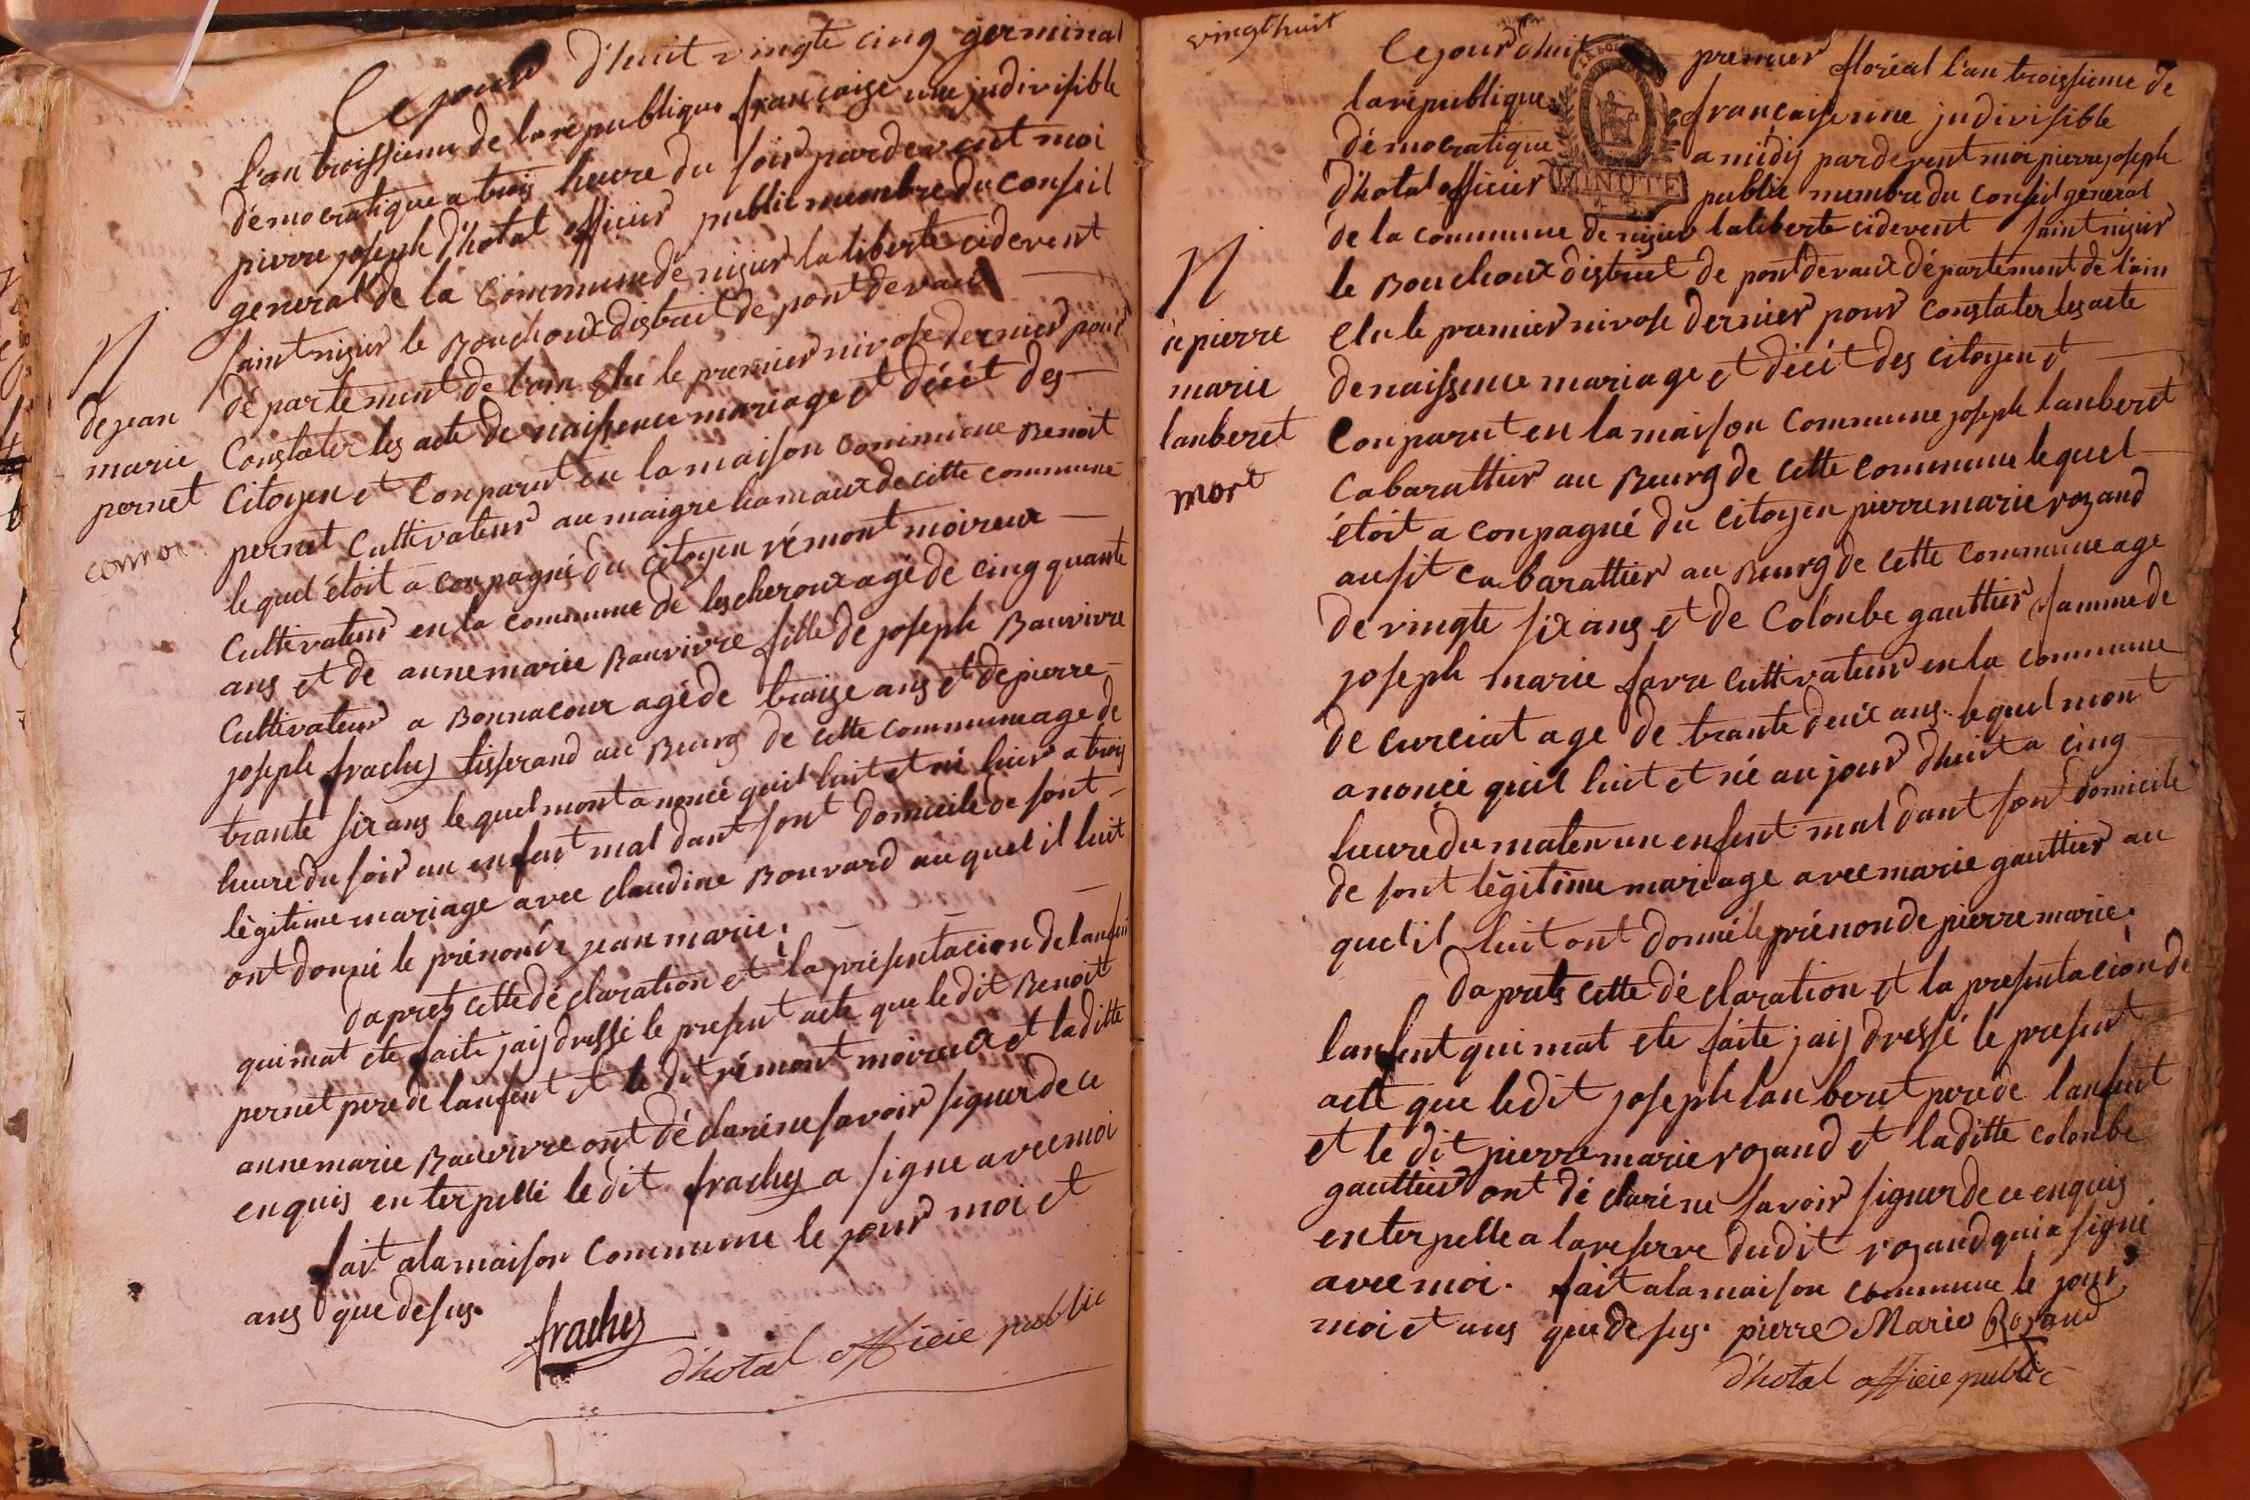 Ce jour d'huit vingte cinq germinal
l'an troissieme de la republique françaisse une judivisible
démocratique a trois heure du soir pardevent moi
pierre joseph d'hotal officier public membre du conseil
general de la commune de nisier la liberte cidevent
saint nisier le Bouchoux distrait de pont de vaux
département de l'ain élu le premier nivose dernier pour
Constater les acte de naissence mariage et décét des
Citoyen et Conparut en la maison commune Benoit
pernet Cultivateur au maigre hamaux de cette commune
le quel étoit a conpagné du citoyen rémont moireux
Cultivateur en la commune de lescheroux agé de cinq quante
ans et de annemarie Bauvivre fille de joseph Bauvivre
Cultivateur a Bonnacour agé de traize ans et de pierre
joseph frachy tisserand au Bourg de cette commune age de
trante six ans le quel mont a noncé quil luit et né hier a trois
heure du soir un enfent mal dant sont domicile de sont
lègitime mariage avec claudine Bouvard au quel il luit
ont donné le prénon de jean marie.
Daprets cette déclaration et la présentacion de lanfent
qui mat ete faite jaij dressé le present acte que le dit Benoit
pernet pere de lanfent et le dit rémont moireux et la ditte
annemarie Bauvivre ont déclaré ne savoir signer de ce
enquis enterpellé le dit frachy a signe avec moi
fait a la maison Commune le jour moi et
ans que desus.
frachy
d'hotal officie public
N
de jean
marie
pernet
vingt huit
Ce jour d'huit premier floréal l'an troissieme de
la republique françaisse une judivisible
démocratique a midij pardevent moi pierre joseph
d'hotal officier public membre du conseil general
de la commune de nisier la liberte cidevent saint nisier
le Bouchoux distrait de pont de vaux département de l'ain
Elu le premier nivose dernier pour constater les acte
de naissence mariage et décét des citoyen et
Conparut en la maison commune joseph lanberet
Cabarattier au Bourg de cette commune le quel
étoit a conpagné du citoyen pierre marie rozand
ausit cabarattier au Bourg de cette commune age
de vingte six ans et de Colonbe gauttier famme de
joseph marie favre cultivateur en la commune
de curciat age de trante deux ans le quel mont
anoncé quil luit et né au jour d'huit a cinq
heure du maten un enfent mal dant sont domicile
de sont lègitime mariage avec marie gauttier au
quel il luit ont donné le prénon de pierre marie.
Daprets cette déclaration et la presentacion de
lanfent qui mat ete faite jaij dressé le present
acte que ledit joseph lanberet pere de lanfent
et le dit pierre marie rozand et la ditte colonbe
gauttier ont déclaré ne savoir signer de ce enquis
enterpelle a la reserve dudit rozand qui a signé
avec moi. fait a la maison commune le jour
moi et ans que desus. pierre Marie Rozand
d'hotal officie public
N
a pierre
marie
lanberet
mort
MINUTE